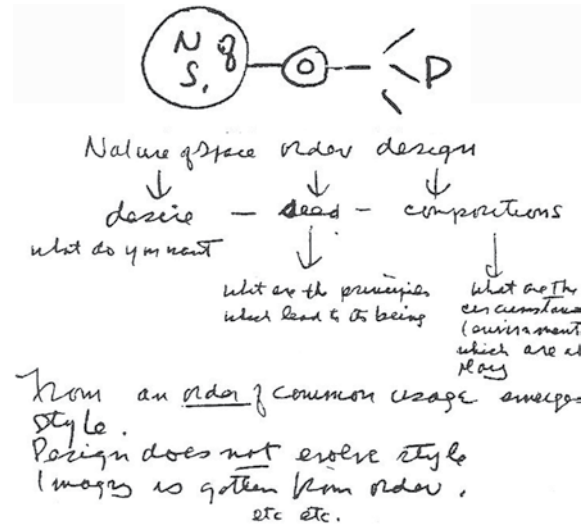 N of
S.
O
D
Nature of Space order design
desire — seed — compositions
what do you want
what are the principles
which lead to its being
what are the
circumstance
(environment
which are at
play
From an order of common usage emerges
style.
Design does not evolve style
Imagry is gotten from order.
etc etc.